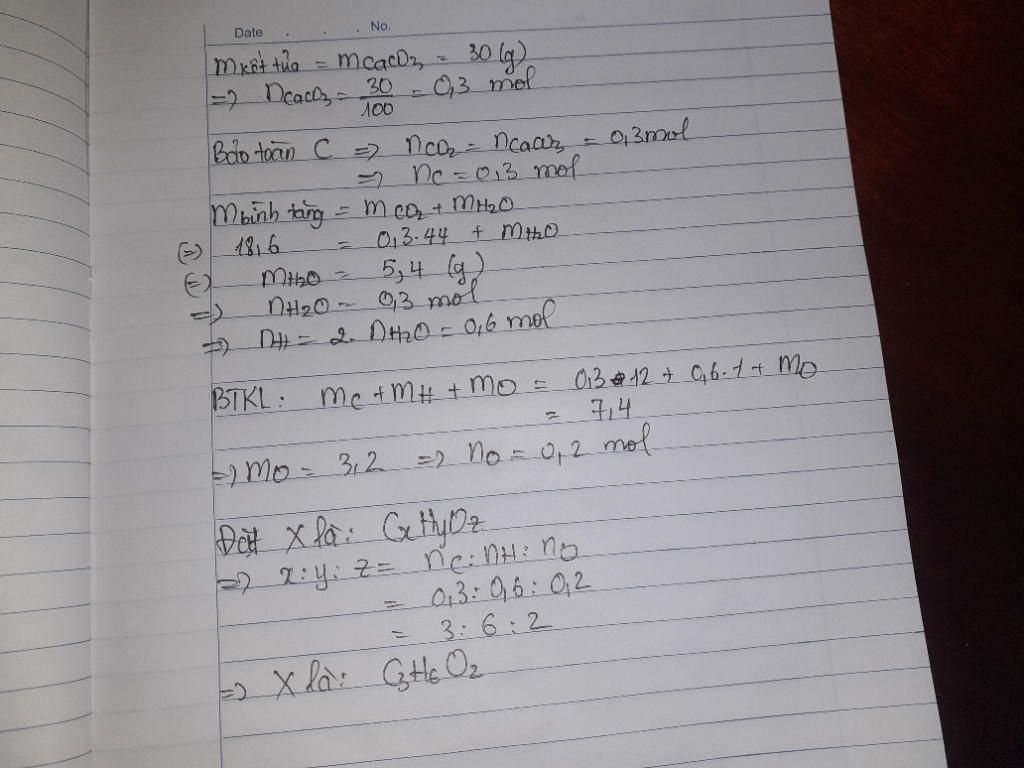 Date . . . No.
m kết tủa = mCaCO3 = 30 (g)
=> nCaCO3 = 30/100 = 0,3 mol
Bảo toàn C => nCO2 = nCaCO3 = 0,3 mol
=> nC = 0,3 mol
m bình tăng = mCO2 + mH2O
(=) 18,6 = 0,3.44 + mH2O
(=) mH2O = 5,4 (g)
=> nH2O = 0,3 mol
=> nH = 2. nH2O = 0,6 mol
BTKL: mC + mH + mO = 0,3.12 + 0,6.1 + mO
= 7,4
=> mO = 3,2 => nO = 0,2 mol
Đặt X là: CxHyOz
=> x:y:z = nC:nH:nO
= 0,3:0,6:0,2
= 3:6:2
=> X là: C3H6O2